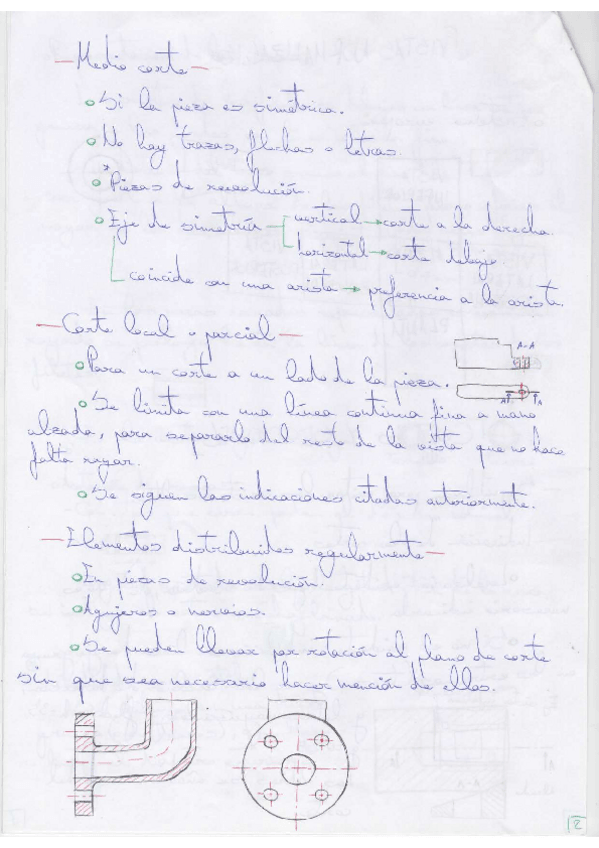 -Medio corte-
Si la pieza es simétrica.
No hay trazas, flechas o letras.
*Piezas de revolución.
Eje de simetría vertical → corte a la derecha.
horizontal → corte debajo
coincide con una arista → preferencia a la arista.
-Corte local o parcial-
A-A
Para un corte a un lado de la pieza.
A A
Se limita con una línea continua fina a mano
alzada, para separarlo del resto de la vista que no hace
falta rayar.
Se siguen las indicaciones citadas anteriormente.
-Elementos distribuidos regularmente-
En piezas de revolución.
Agujeros o nervios.
Se pueden llevar por rotación al plano de corte
sin que sea necesario hacer mención de ellos.
2